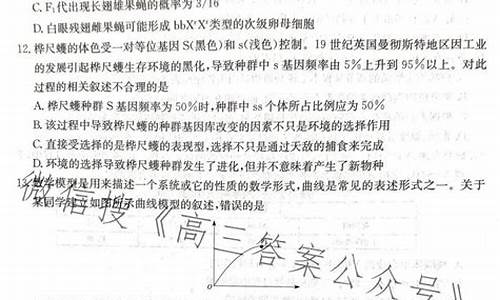 C. F₁代出现长翅雄果蝇的概率为 3/16
D. 白眼残翅雌果蝇可能形成 bbXʳXʳ类型的次级卵母细胞
12. 桦尺蠖的体色受一对等位基因 S(黑色)和 s(浅色)控制。19 世纪英国曼彻斯特地区因工业
的发展引起桦尺蠖生存环境的黑化,导致种群中 s 基因频率由 5%上升到 95%以上。对此
过程的相关叙述不合理的是
A. 桦尺蠖种群 S 基因频率为 50%时,种群中 ss 个体所占比例应为 50%
B. 该过程中导致桦尺蠖的种群基因库改变的因素不只是环境的选择作用
C. 直接受选择的是桦尺蠖的表现型,选择不只是通过天敌的捕食来完成
D. 环境的选择导致桦尺蠖种群发生了进化,但并不意味着产生了新物种
13. 数学模型是用来描述一个系统或它的性质的数学形式,曲线是常见的表达形式之一。关于
某同学建立如图所示曲线模型的叙述,错误的是
微信搜《高三答案公众号》